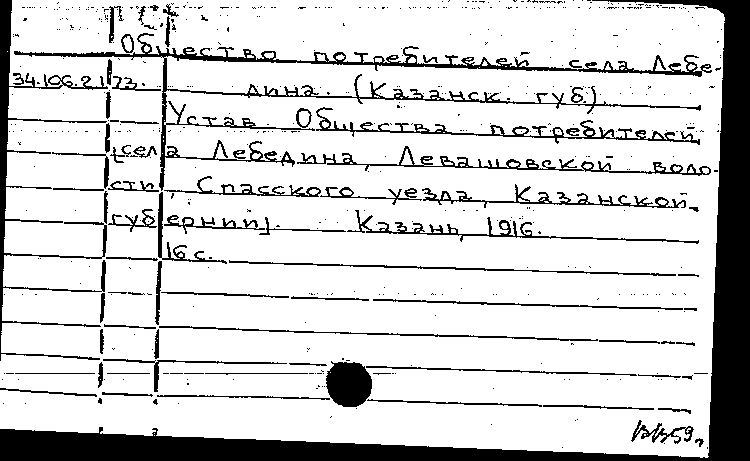 Общество потребителей села Лебе-
34.106.21.73. дина. (Казанск. губ.)
Устав Общества потребителей
[села Лебедина, Левашовской воло-
сти, Спасского уезда, Казанской
губернии]. Казань, 1916.
16 с.